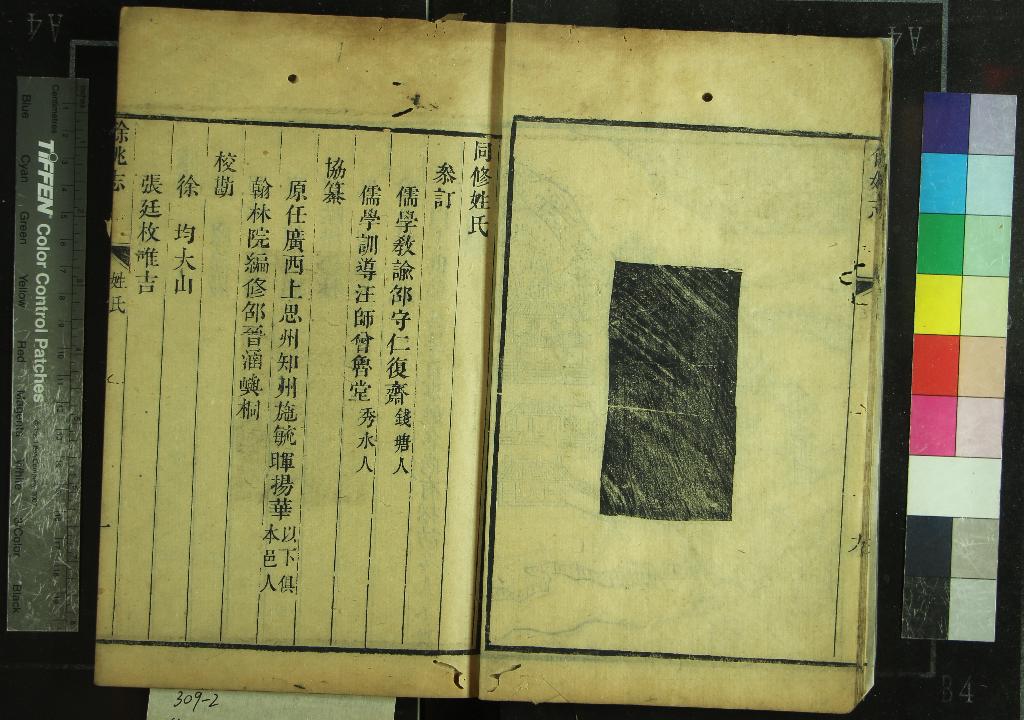 九
同修姓氏
叅訂
儒學敎諭邵守仁復齋 錢塘人
儒學訓導汪師曾魯堂 秀水人
協纂
原任廣西上思州知州施毓暉揚華 以下俱
本邑人
翰林院編修邵晉涵與桐
校勘
徐 均大山
張廷枚唯吉
餘姚志
姓氏
一
309-2
TIFFEN Color Control Patches
Centimetres
Blue
Cyan
Green
Yellow
Red
Magenta
White
3-Color
Black
A4
A4
B4